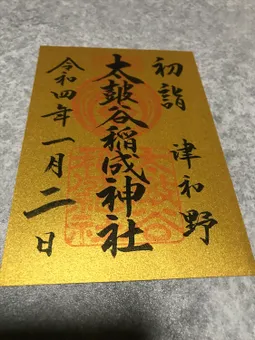 初詣 津和野
太皷谷稲成神社
令和四年一月二日